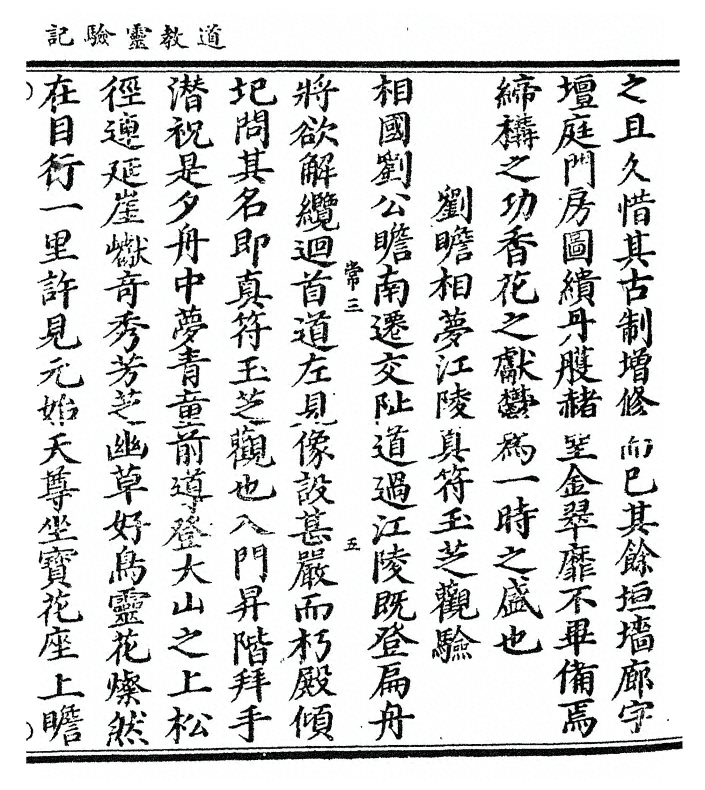 道教靈驗記
之且久惜其古制增修而已其餘垣墻廊宇
壇庭門房圖繢丹雘赭堊金翠靡不畢備焉
締構之功香花之獻鬱為一時之盛也
劉瞻相夢江陵真符玉芝觀驗
相國劉公瞻南遷交阯道過江陵既登扁舟
常三
五
將欲解纜迴首道左見像設甚嚴而朽殿傾
圮問其名即真符玉芝觀也入門昇階拜手
潛祝是夕舟中夢青童前導登大山之上松
徑連延崖巘奇秀芳芝幽草好鳥靈花燦然
在目行一里許見元始天尊坐寶花座上瞻